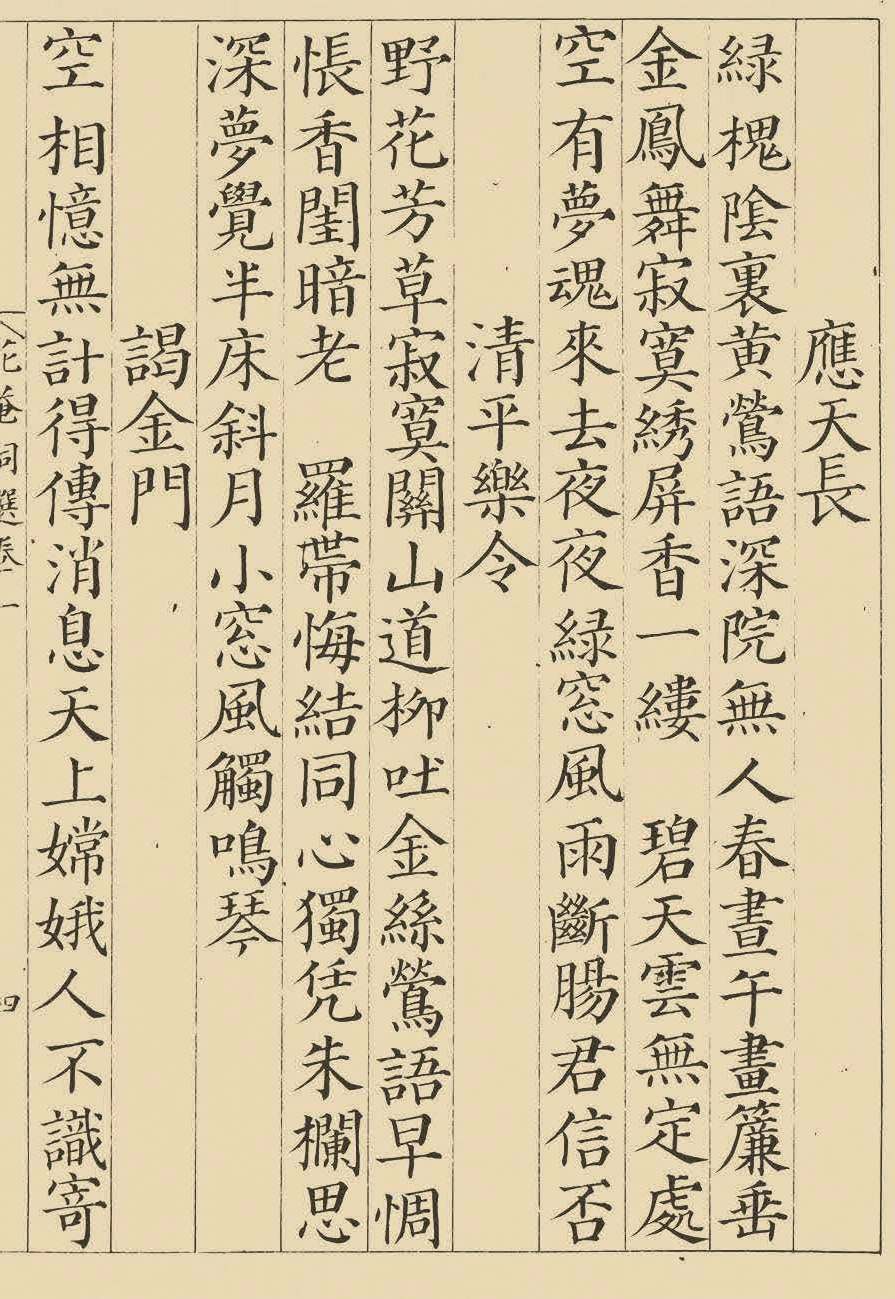 應天長
緑槐隂裏黄鶯語深院無人春晝午畫簾垂
金鳳舞寂寞綉屏香一縷　碧天雲無定處
空有夢魂來去夜夜緑窓風雨斷腸君信否
清平樂令
野花芳草寂寞關山道柳吐金絲鶯語早惆
悵香閨暗老　羅帶悔結同心獨凭朱欄思
深夢覺半床斜月小窓風觸鳴琴
謁金門
空相憶無計得傳消息天上嫦娥人不識寄
花庵詞選卷一
四